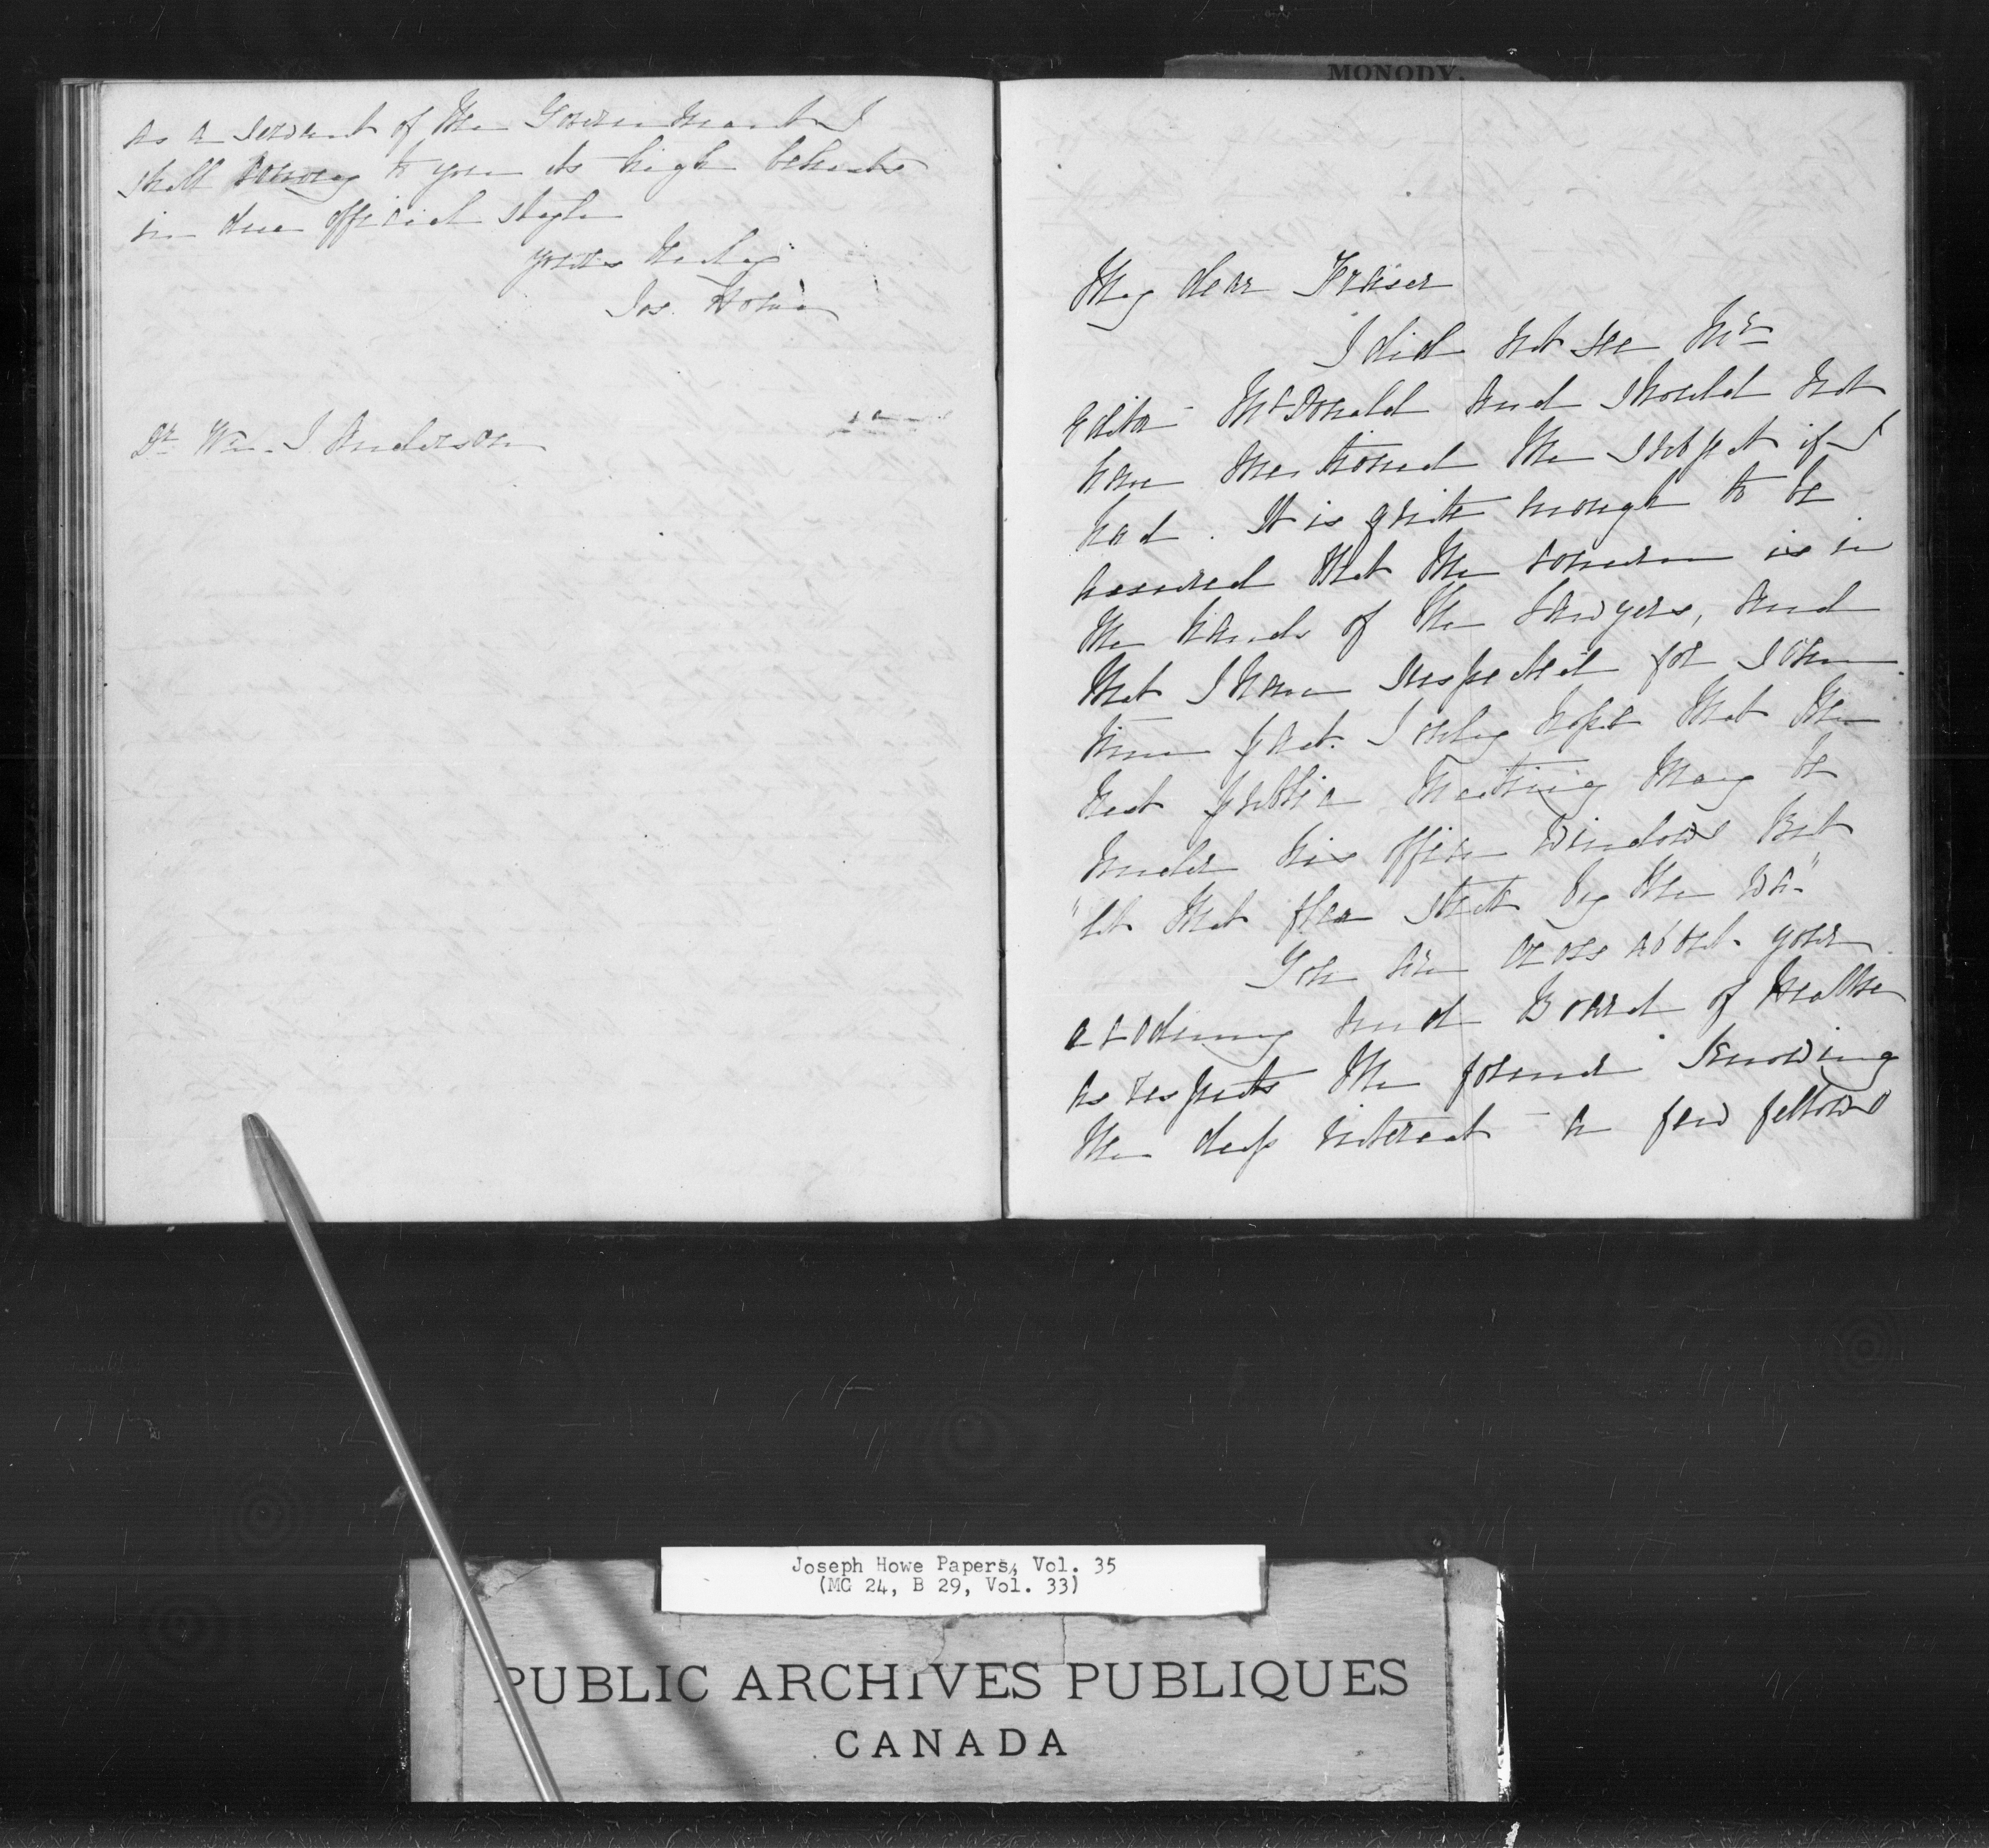 as a servant of the Government I
shall convey to you its high behests
in due official style
yours truly
Jos. Howe
Dr Wm. J Anderson
MONODY.
My dear Fraser
I did not see Mr
Editor McDonald and should not
have mentioned the subject if I
had. It is quite enough to be
assured that the concern is in
the hands of the Lawyers, and
that I have suspected for some
time past. I only hope that the
next public meeting may be
under his office windows but
"let that flea stick by the wa."
You are cross about your
academy and Board of Health
as respects the former knowing
the deep interest a few fellows
Joseph Howe Papers, Vol. 35
(MG 24, B 29, Vol. 33)
PUBLIC ARCHIVES PUBLIQUES
CANADA